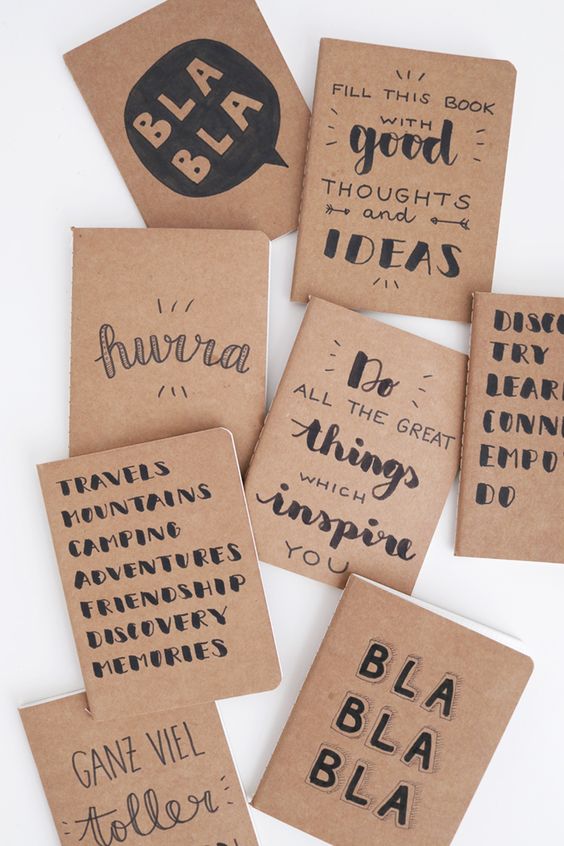 BLA
BLA
FILL THIS BOOK
WITH
good
THOUGHTS
and
IDEAS
hurra
Do
ALL THE GREAT
things
WHICH
inspire
YOU
TRY
DO
TRAVELS
MOUNTAINS
CAMPING
ADVENTURES
FRIENDSHIP
DISCOVERY
MEMORIES
BLA
BLA
BLA
GANZ VIEL
toller